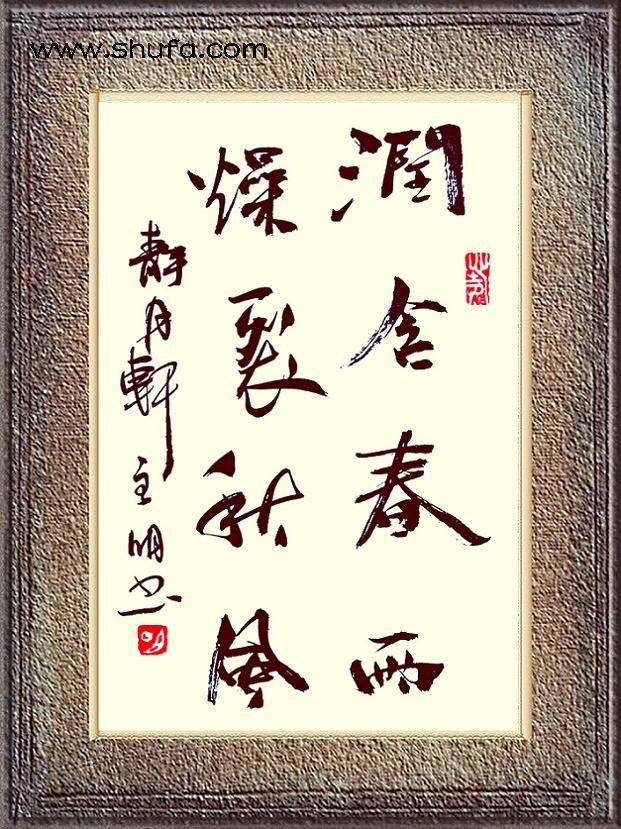 www.shufa.com
潤含春雨
燥裂秋风
静月軒主明书